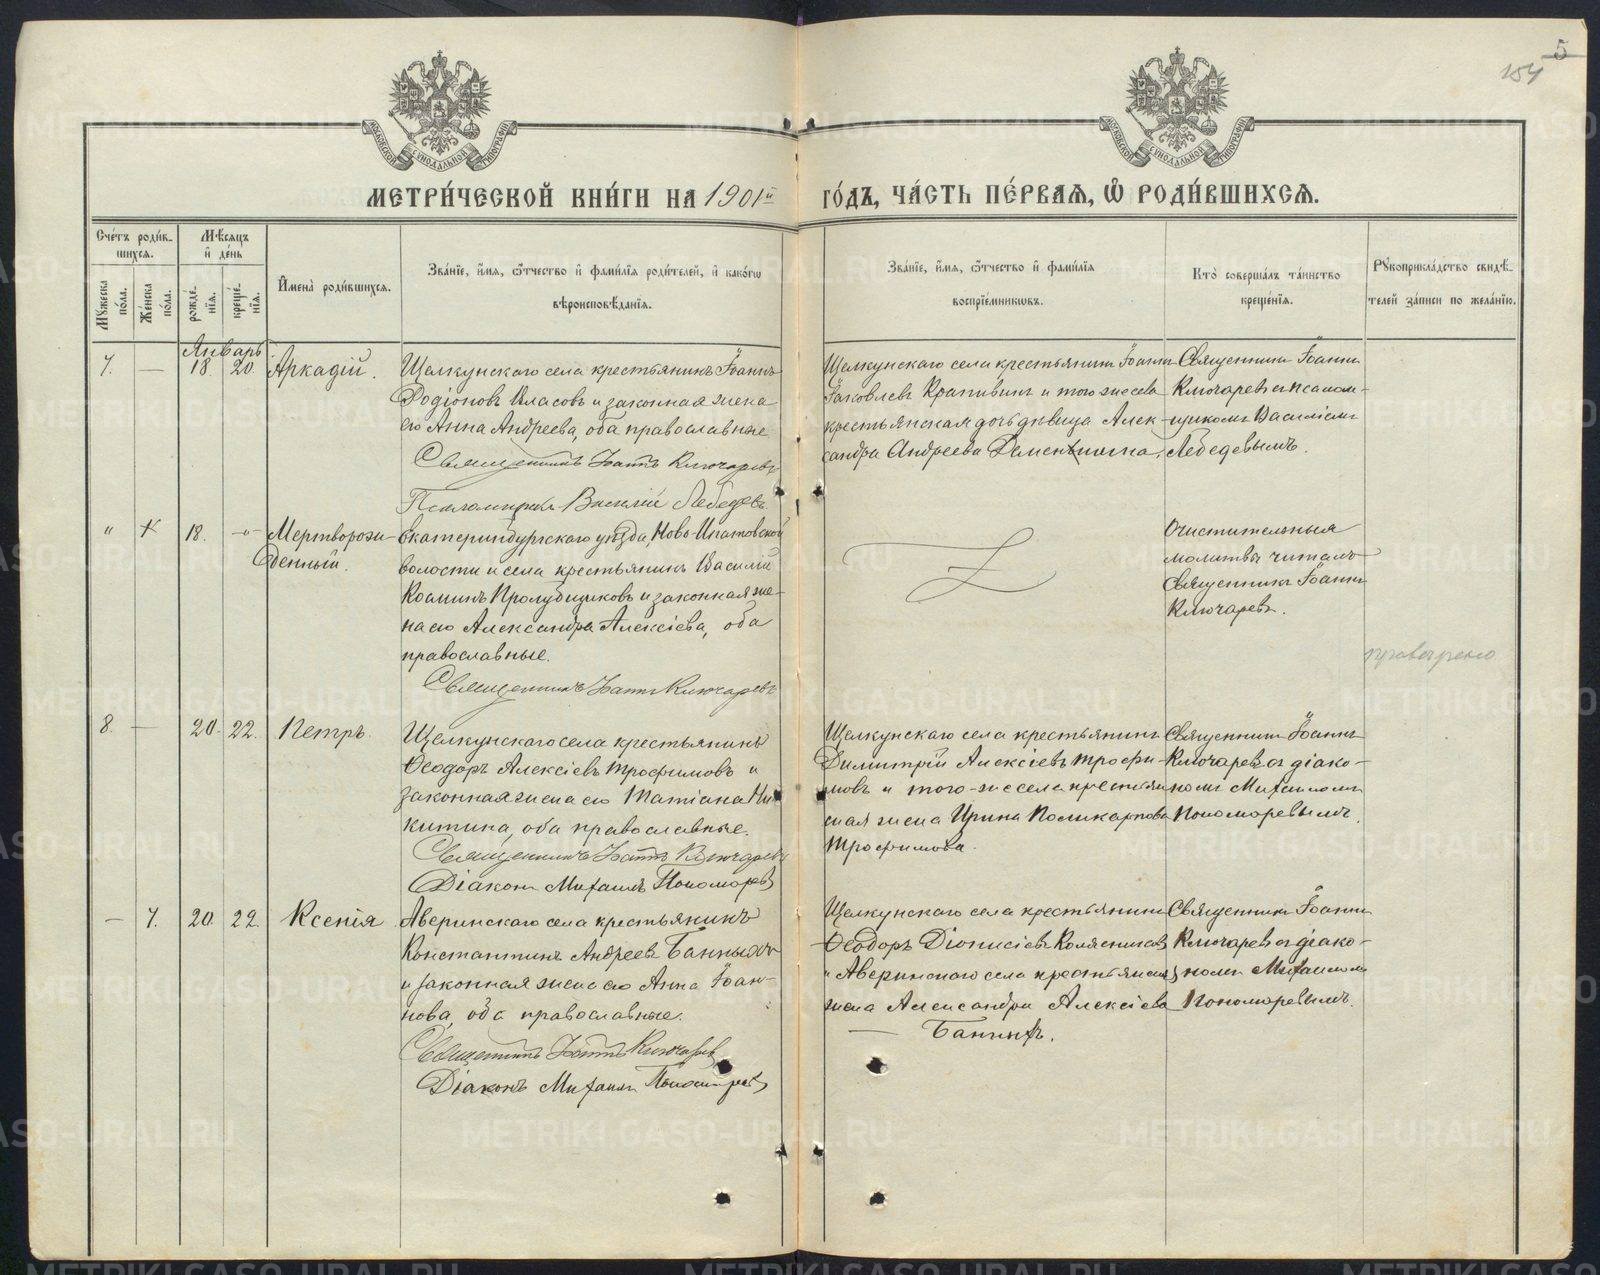 5
154
МОСКОВСКОЙ СѴНОДАЛЬНОЙ ТИПОГРАФІИ
МОСКОВСКОЙ СѴНОДАЛЬНОЙ ТИПОГРАФІИ
МЕТРИ́ЧЕСКОЙ КНИ́ГИ НА 1901й ГО́ДЪ, ЧА́СТЬ ПЕ́РВАѦ, Ѡ҆ РОДИ́ВШИХСѦ.
Сче́тъ роди́в-
шихсѧ.
Мѣ́сѧцъ
и҆ де́нь
Мꙋ́жеска по́ла.
Же́нска по́ла.
рожде́-
нїѧ.
креще́-
нїѧ.
И҆мена̀ роди́вшихсѧ.
Зва́нїе, и҆́мѧ, ѻ҆́тчество и҆ фамилїѧ роди́телей, и҆ како́гѡ
вѣроисповѣ́данїѧ.
Зва́нїе, и҆́мѧ, ѻ҆́тчество и҆ фамилїѧ
воспрїе́мникѡвъ.
Кто̀ соверша́лъ та́инство
креще́нїѧ.
Рꙋкоприкла́дство свидѣ́-
телей за́писи по жела́нїю.
Январь
7. — 18. 20. Аркадій.
Щелкунскаго села крестьянинъ Іоаннъ
Родіоновъ Власовъ и законная жена
его Анна Андреева, оба православные
Священникъ Іоаннъ Ключаревъ
Псаломщикъ Василій Лебедевъ
Щелкунскаго села крестьянинъ Іоаннъ
Іаковлевъ Крапивинъ и того же села
крестьянская дочь дѣвица Алек-
сандра Андреева
Священникъ Іоаннъ
Ключаревъ съ псалом-
щикомъ Василіемъ
Лебедевымъ.
" 18. -"- Мертворож-
денный.
Екатеринбургскаго уѣзда, Ново-Ипатовской
волости и села крестьянинъ Василій
Косминъ Пролубщиковъ и законная же-
на его Александра Алексіева, оба
православные.
Священникъ Іоаннъ Ключаревъ
Очистительныя
молитвы читалъ
Священникъ Іоаннъ
Ключаревъ.
проверено
8. — 20. 22. Петръ.
Щелкунскаго села крестьянинъ
Ѳеодоръ Алексіевъ Трофимовъ и
законная жена его Татіана Ни-
китина, оба православные.
Священникъ Іоаннъ Ключаревъ
Діаконъ Михаилъ Пономаревъ
Щелкунскаго села крестьянинъ
Димитрій Алексіевъ Трофи-
мовъ и того-же села крестьян-
ская жена Ирина Поликарпова
Трофимова.
Священникъ Іоаннъ
Ключаревъ съ діако-
номъ Михаиломъ
Пономаревымъ.
— 7. 20. 22. Ксенія
Аверинскаго села крестьянинъ
Константинъ Андреевъ Банныхъ
и законная жена его Анна Іоан-
нова, оба православные.
Священникъ Іоаннъ Ключаревъ
Діаконъ Михаилъ Пономаревъ
Щелкунскаго села крестьянинъ
Ѳеодоръ Діонисіевъ Колясниковъ
и Аверинскаго села крестьянская
жена Александра Алексіева
— Банныхъ.
Священникъ Іоаннъ
Ключаревъ съ діако-
номъ Михаиломъ
Пономаревымъ.
METRIKI.GASO-URAL.RU